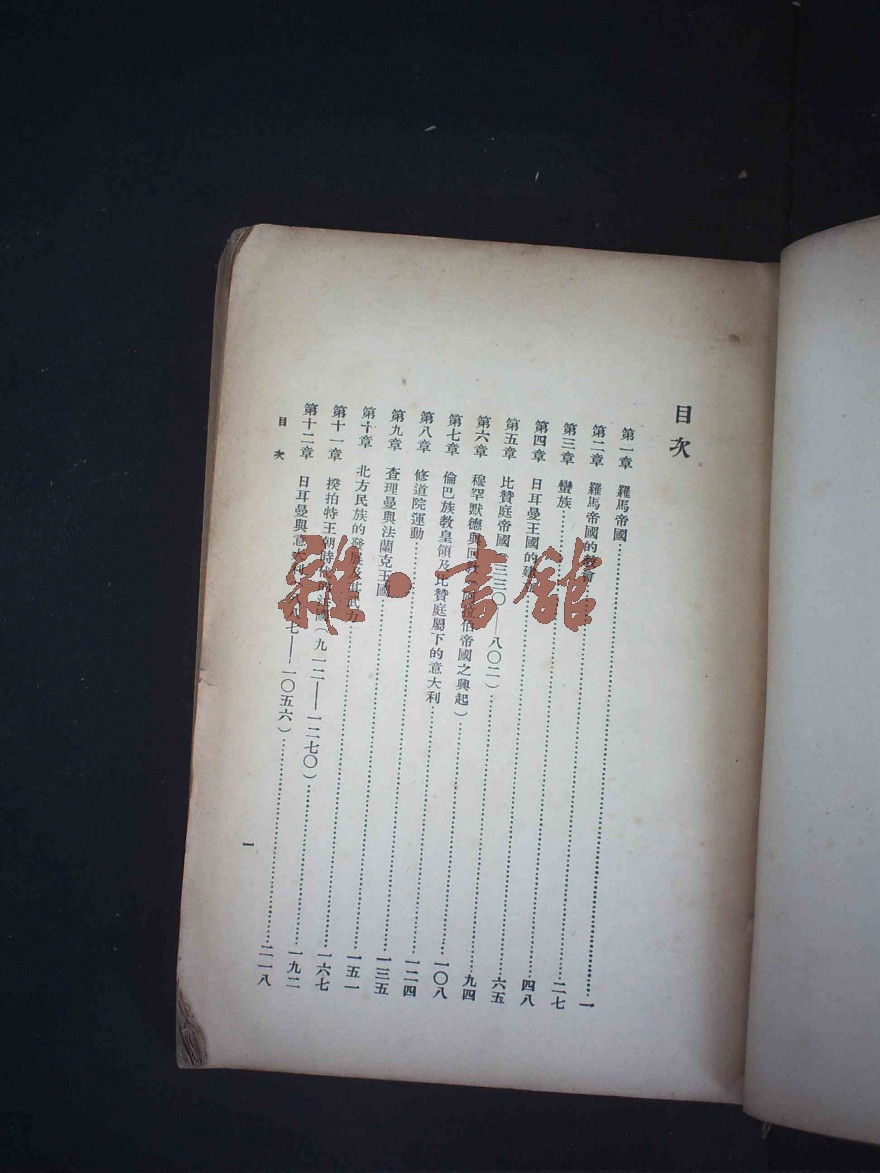 目次
第一章 羅馬帝國……一
第二章 羅馬帝國的教會……二七
第三章 蠻族……四八
第四章 日耳曼王國的……六五
第五章 比贊庭帝國(三三〇——八〇二)……九四
第六章 穆罕默德與回教(阿拉伯帝國之興起)……一〇八
第七章 倫巴族教皇領及比贊庭屬下的意大利……一二四
第八章 修道院運動……一三五
第九章 查理曼與法蘭克王國……一五一
第十章 北方民族的發展及其武力……一六七
第十一章 揆拍特王朝時代的法國(九一二——一二七〇)……一九二
第十二章 日耳曼與意大利(八八七——一〇五六)……二一八
目次
一
雜·書館